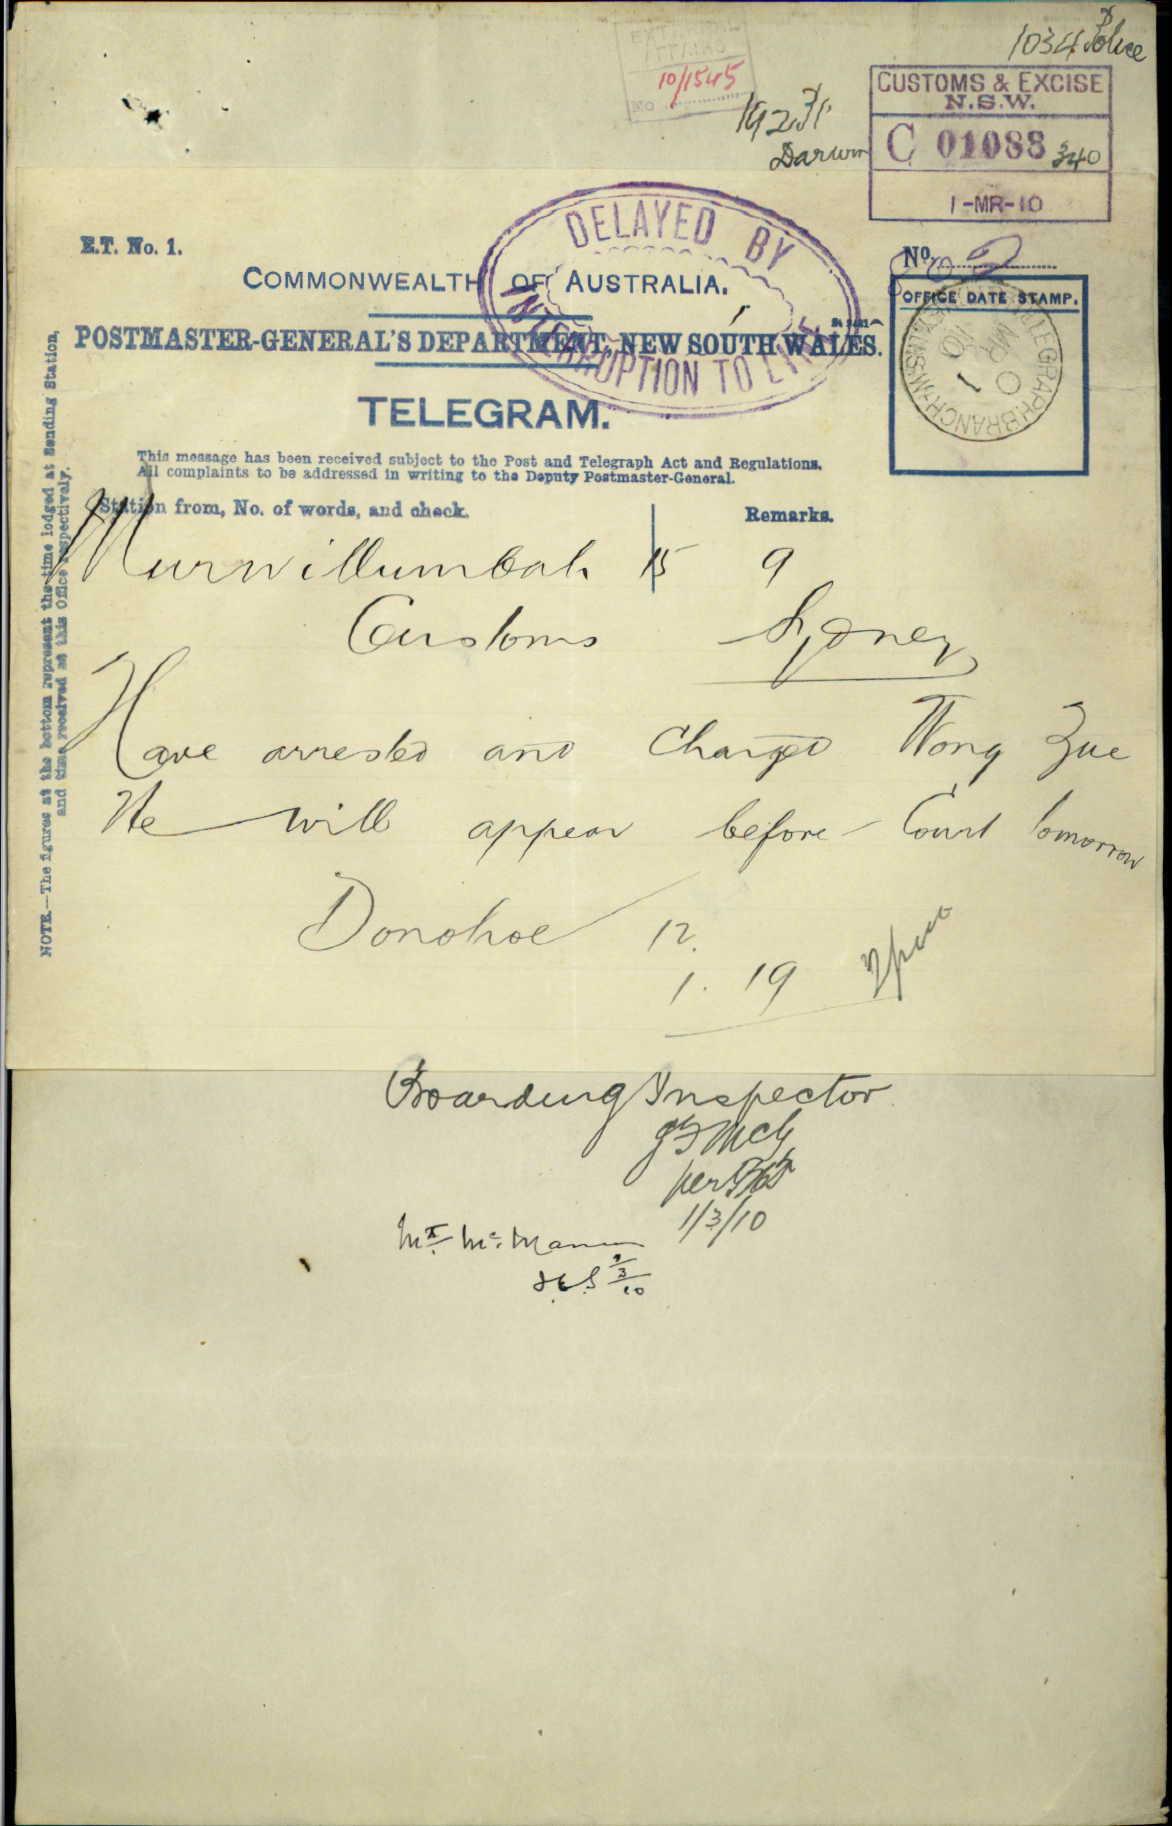 1034 Police
EXTERNAL
10/1545
No
Darwin
CUSTOMS & EXCISE
N.S.W.
C 01088 340
1-MR-10
DELAYED BY
INTERRUPTION TO LINE
E.T. No. 1.
No. 2
COMMONWEALTH OF AUSTRALIA.
OFFICE DATE STAMP.
TELEGRAPH BRANCH
1 MR 10
POSTMASTER-GENERAL'S DEPARTMENT, NEW SOUTH WALES.
TELEGRAM.
This message has been received subject to the Post and Telegraph Act and Regulations.
All complaints to be addressed in writing to the Deputy Postmaster-General.
Station from, No. of words, and check. Remarks.
Murwillumbah 15 9
Customs Sydney
Have arrested and charged Wong Zue
He will appear before Court tomorrow
Donohoe 12.
1. 19 2pm
NOTE.—The figures at the bottom represent the time lodged at Sending Station,
and time received at this Office respectively.
Boarding Inspector
per
1/3/10
Mr